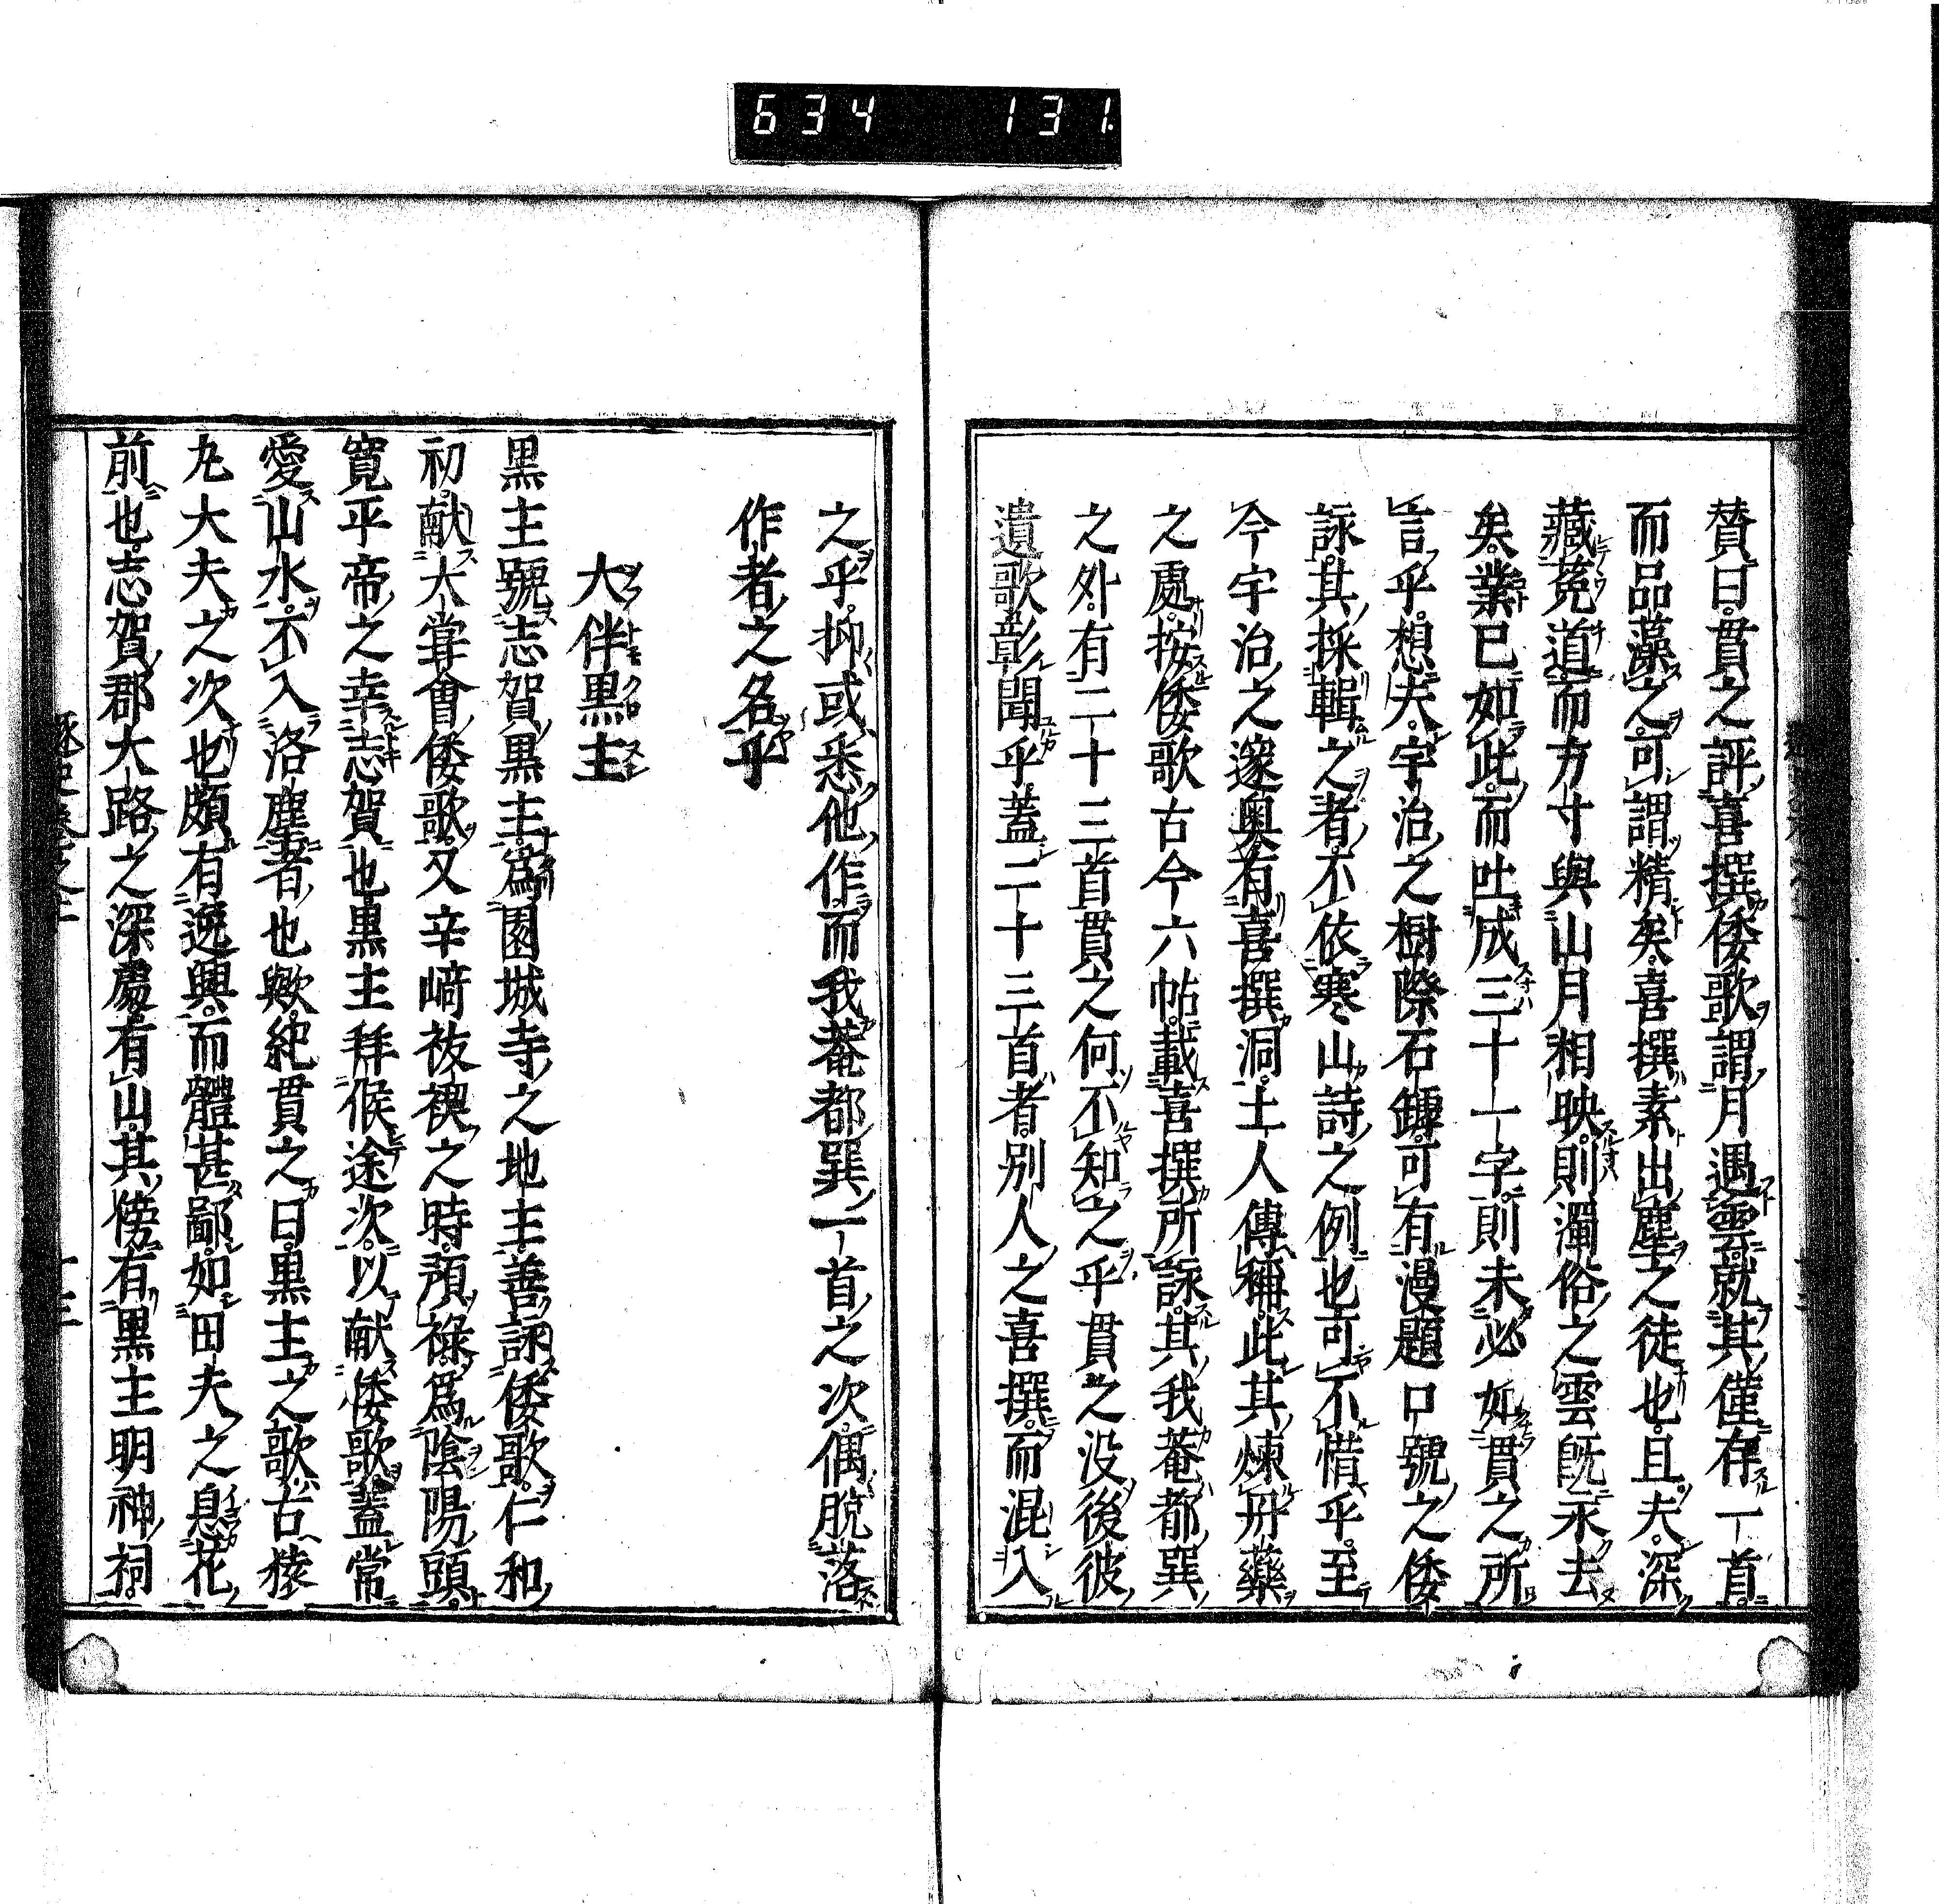 634 131
賛曰貫之評喜撰倭歌謂月遇雲就其僅存一首
而品藻之可謂精矣喜撰素出塵之徒也且夫深
藏菟道而方寸與山月相映則濁俗之雲既永去
矣業已如此而吐成三十一字則未必如貫之所
言乎想夫宇治之樹際石罅可有漫題口號之倭
詠其採輯之者不依寒山詩之例也可不惜乎至
今宇治之邃奧有喜撰洞土人傳稱此其煉丹藥
之處按倭歌古今六帖載喜撰所詠其我菴都巽
之外有二十三首貫之何不知之乎貫之没後彼
遺歌彰聞乎蓋二十三首者別人之喜撰而混入
之乎抑或悉他作而我菴都巽一首之次偶脱落
作者之名乎
大伴黒主
黒主號志賀黒主爲園城寺之地主善詠倭歌仁和
初献大甞會倭歌又辛﨑祓禊之時預祿爲陰陽頭
寛平帝之幸志賀也黒主拜候途次以献倭歌蓋常
愛山水不入洛塵者也歟紀貫之曰黒主之歌古猿
丸大夫之次也頗有逸興而體甚鄙如田夫之息花
前也志賀郡大路之深處有山其傍有黒主明神祠